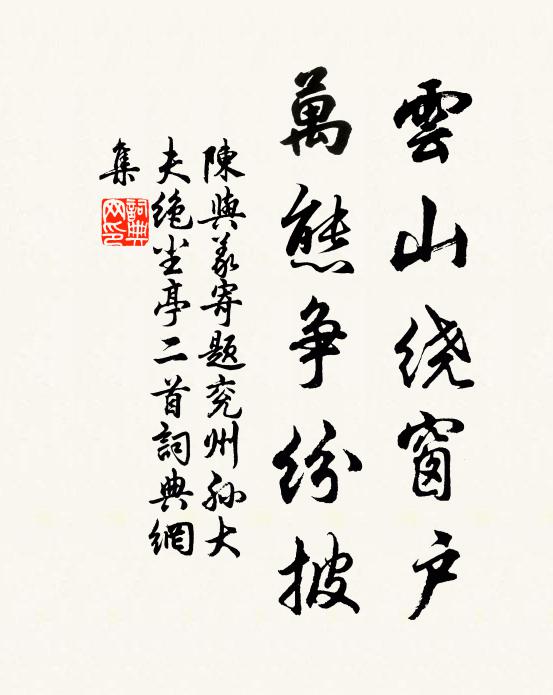 雲山绕窗户
萬態争紛披
陳與義寄題兖州孙大
夫绝尘亭二首詞典網
集
詞典網印